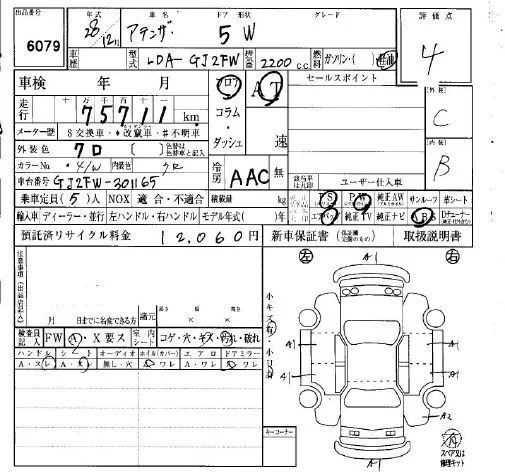 出品番号
6079
年式
28年
12月
車名
アテンザ
ドア 形状
5 W
グレード
評価点
4
車歴
型式
LDA-GJ2FW
排気量
2200 c.c.
燃料
ガソリン・( )・軽油
車検 年 月
フロア
コラム
・
ダッシュ
AT
速
セールスポイント
[外装]
C
走行
十 万 千 百 十
75711 km
メーター歴
$交換車・*改竄車・#不明車
外装色
クロ
( )
色替は
色替車と記入
[内装]
B
カラーNo.
41W
内装色
冷房
AAC
無
車台番号
GJ2FW-301165
該当装備
は丸印
ユーザー仕入車
乗車定員(5)人
NOX 適合・不適合
積載量
kg
PS
PW
純正AW
サンルーフ
革シート
輸入車
ディーラー・並行
左ハンドル・右ハンドル
モデル年式( )年
エアバック
純正TV
純正ナビ
ABS
預託済リサイクル料金
12,060円
新車保証書
取扱説明書
注意事項(出品店記入)
左
右
A1
小キズ有・小凹有
月 日までに名変できる方
諸元
長さ
幅
高さ
× ×
検査員記入
FW・A・X要ス
室内シート
コゲ・穴・キズ・汚れ・破れ
ハンドル
シート
オーディオ
ホイル(カバー)
エアロ
ドアミラー
A・ス
A・ス
無し・穴
A ワレ
A・ワレ
A ワレ
A1
A1
A1
A1
A2
A1
キーコーナー
スペア又は
修理キット